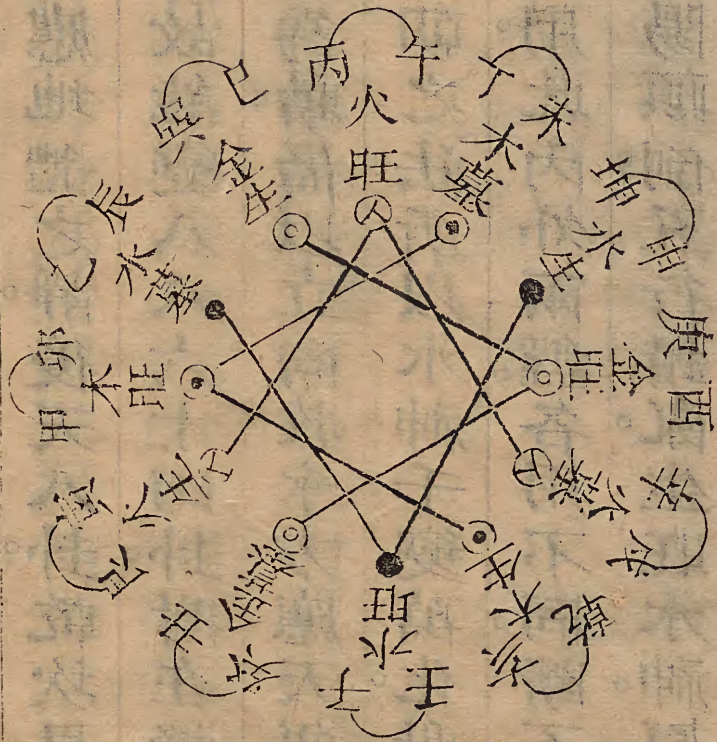 丙午
火旺
丁未
木墓
坤申
水生
庚酉
金旺
辛戌
火墓
乾亥
木生
壬子
水旺
癸丑
金墓
艮寅
火生
甲卯
木旺
乙辰
水墓
巽巳
金生